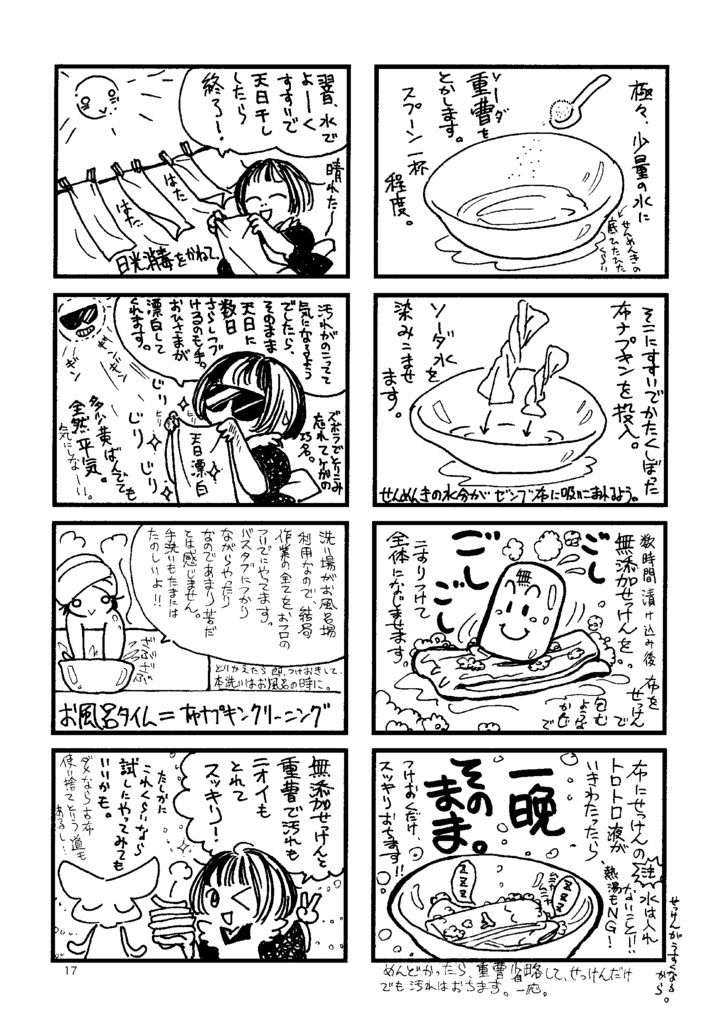 極々、少量の水に
重曹を
ソーダ
とかします。
スプーン一杯
程度。
せんめんきの
底ひたひた
くらい
そこにすすいでかたくしぼった
布ナプキンを投入。
ソーダ水を
染みこませ
ます。
せんめんきの水分がゼンブ布に吸いこまれるよう。
数時間漬け込み後
無添加せっけんを
ゴシ
ゴシ
ゴシ
無
こすりつけて
全体になじませます。
布を
せっけん
で
包む
ような
かんじ
で
布にせっけんの
トロトロ液が
いきわたったら、
注 水は入れ
ないこと!!
熱湯もNG!
せっけんがうすくなる
から。
一晩
そのまま。
つけおくだけ、
スッキリおちます!!
ZZZ
ZZZ
めんどかったら、重曹省略して、せっけんだけ
でも汚れはおちます。一応。
翌、水で
よーく
すすいで
天日干し
したら
終了!
晴れたー
はた
はた
日光消毒をかねて。
汚れがのこってて
気になるよう
でしたら、
そのまま
天日に
数日
さらしつづ
けるのも手。
おひさまが
漂白して
くれます。
ギン
ギンギン
じり
じり
じり
ズボラでとりこみ
忘れてただけ
天日漂白
多少黄ばんでても
全然平気。
気にしなーい。
洗い場がお風呂場
利用なので、結局
作業の全てをおフロの
ついでにやってます。
バスタブにつかり
ながらやったり
なのであまり苦だ
とは感じません。
手洗いもたまには
たのしいよ!!
ざぶ
ざぶ
とりかえたら即、つけおきして、
本洗いはお風呂の時に。
お風呂タイム=布ナプキンクリーニング
無添加せっけんと
重曹で汚れも
ニオイも
とれて
スッキリ!
たしかに
これくらいなら
試しにやってみても
いいかも。
ダメなら古布
使い捨てという道も
あるし!
17